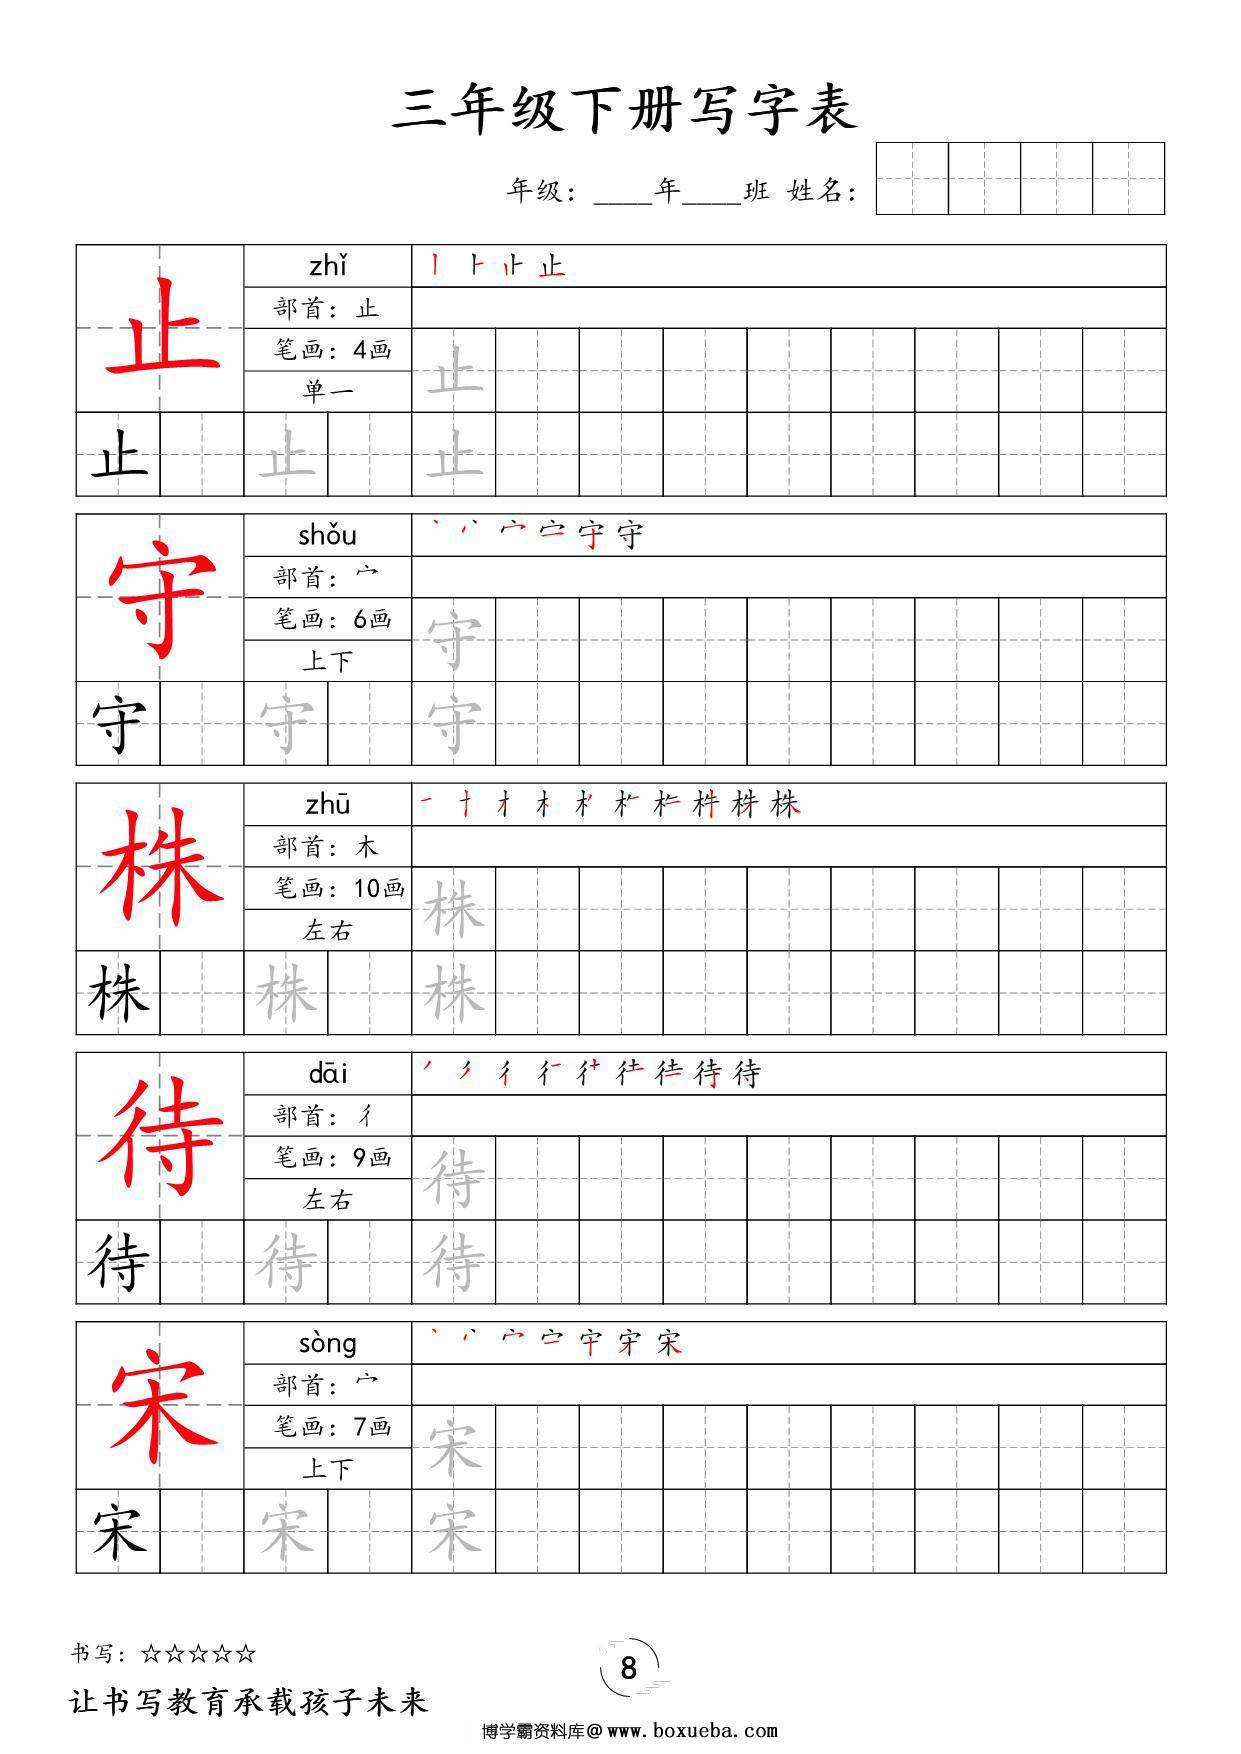 三年级下册写字表
年级：____年____班 姓名：
止 zhǐ 丨 ⺊ 止
部首：止
笔画：4画
止
单一
止 止 止
守 shǒu 丶 丶 宀 守 守
部首：宀
笔画：6画
守
上下
守 守 守
株 zhū 一 十 才 木 株
部首：木
笔画：10画
株
左右
株 株 株
待 dāi 丿 彳 待 待
部首：彳
笔画：9画
待
左右
待 待 待
宋 sòng 丶 丶 宀 宋
部首：宀
笔画：7画
宋
上下
宋 宋 宋
书写：☆☆☆☆☆
8
让书写教育承载孩子未来
博学霸资料库@www.boxueba.com